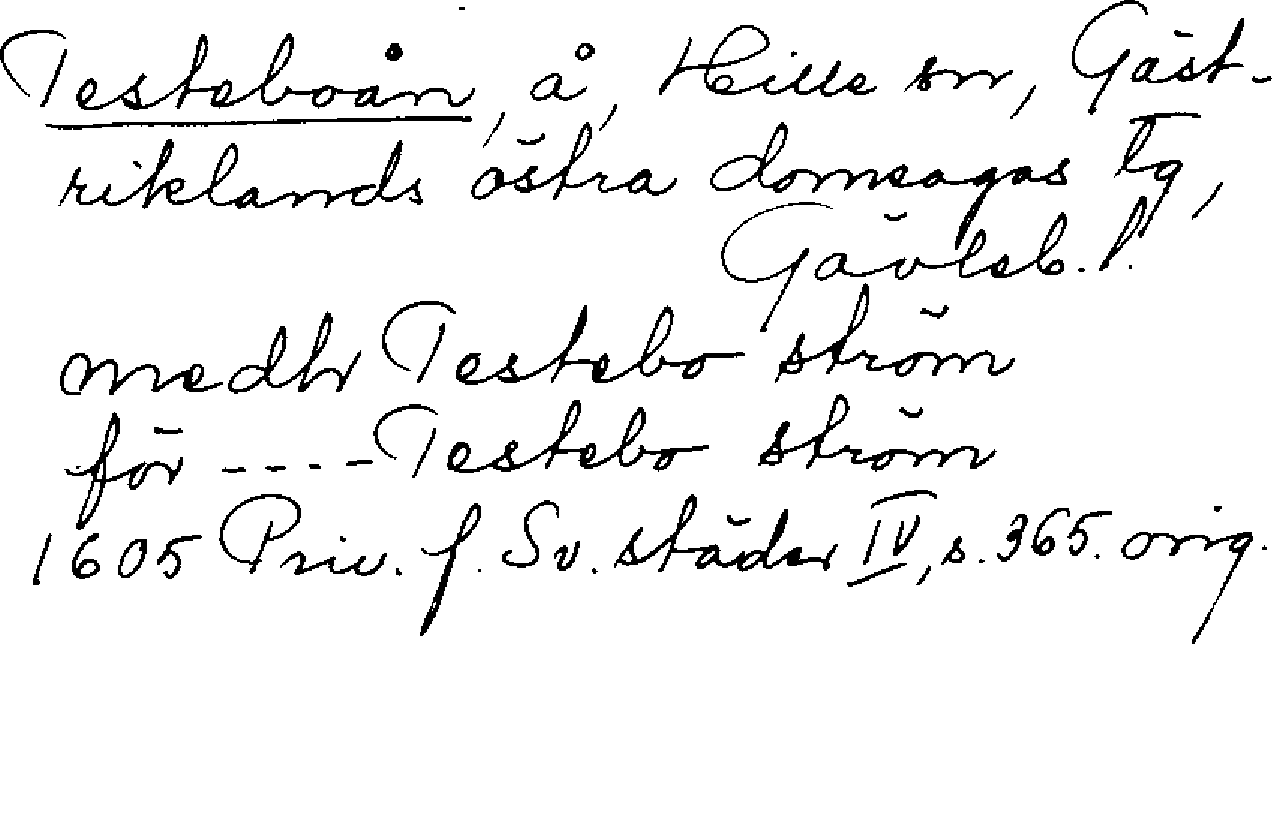 Testeboån, å, Hille sn, Gäst-
riklands östra domsagas tg,
Gävleb. l.
medhr Testebo ström
för ---- Testebo ström
1605 Priv. f. Sv. städer IV, s. 365. orig.